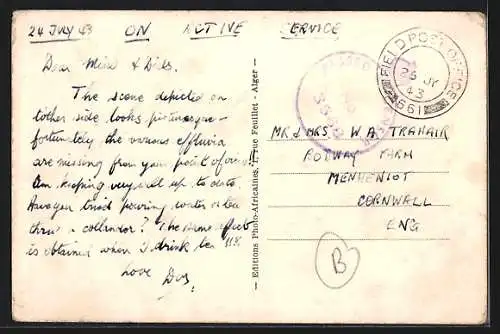 24 JULY 43 ON ACTIVE SERVICE
Dear Mira & Dids.
The scene depicted on
t'other side looks picturesque -
fortunately the various effluvia
are missing from your point of view
Am keeping very well up to date.
Have you tried pouring water
thru a collander? The same effect
is obtained when I drink
Love
- Editions Photo-Africaines, Rue Feuillet - Alger -
PASSED
FIELD POST OFFICE
25 JY
43
661
MR & MRS W. A. TRANAIR
RODWAY FARM
MENHENIOT
CORNWALL
ENG
B